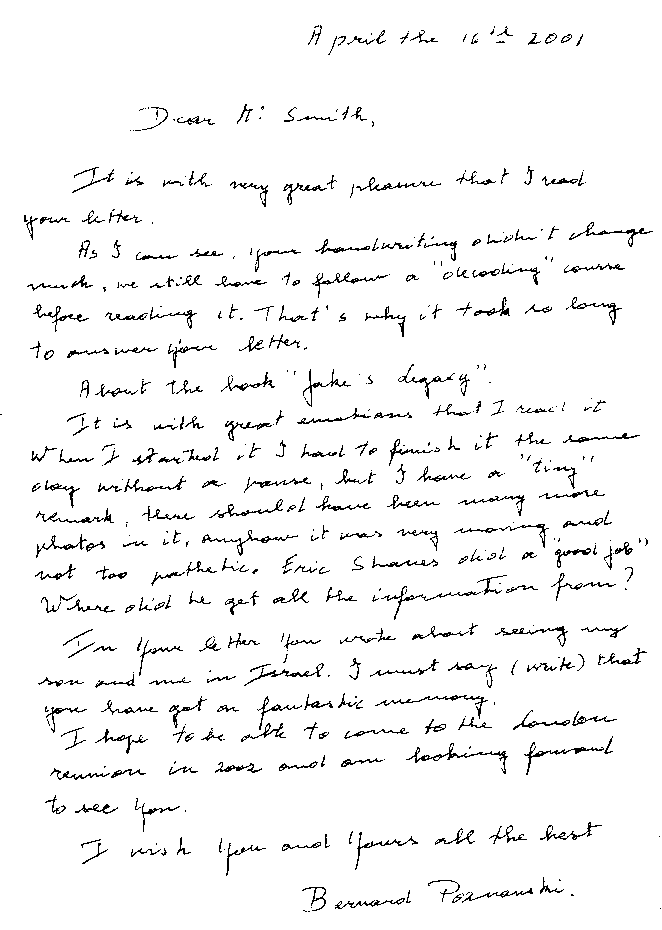 April the 16th 2001
Dear Mr Smith,
It is with very great pleasure that I read
your letter.
As I can see, your handwriting didn't change
much, we still have to follow a "decoding" course
before reading it. That's why it took so long
to answer your letter.
About the book "Jake's Legacy".
It is with great emotions that I read it
When I started it I had to finish it the same
day without a pause, but I have a "tiny"
remark, there should have been many more
photos in it, anyhow it was very moving and
not too pathetic. Eric Shanes did a "good job"
Where did he get all the information from?
In your letter you wrote about seeing my
son and me in Israel. I must say (write) that
you have got a fantastic memory.
I hope to be able to come to the London
reunion in 2002 and am looking forward
to see you.
I wish you and yours all the best
Bernard Poznanski.